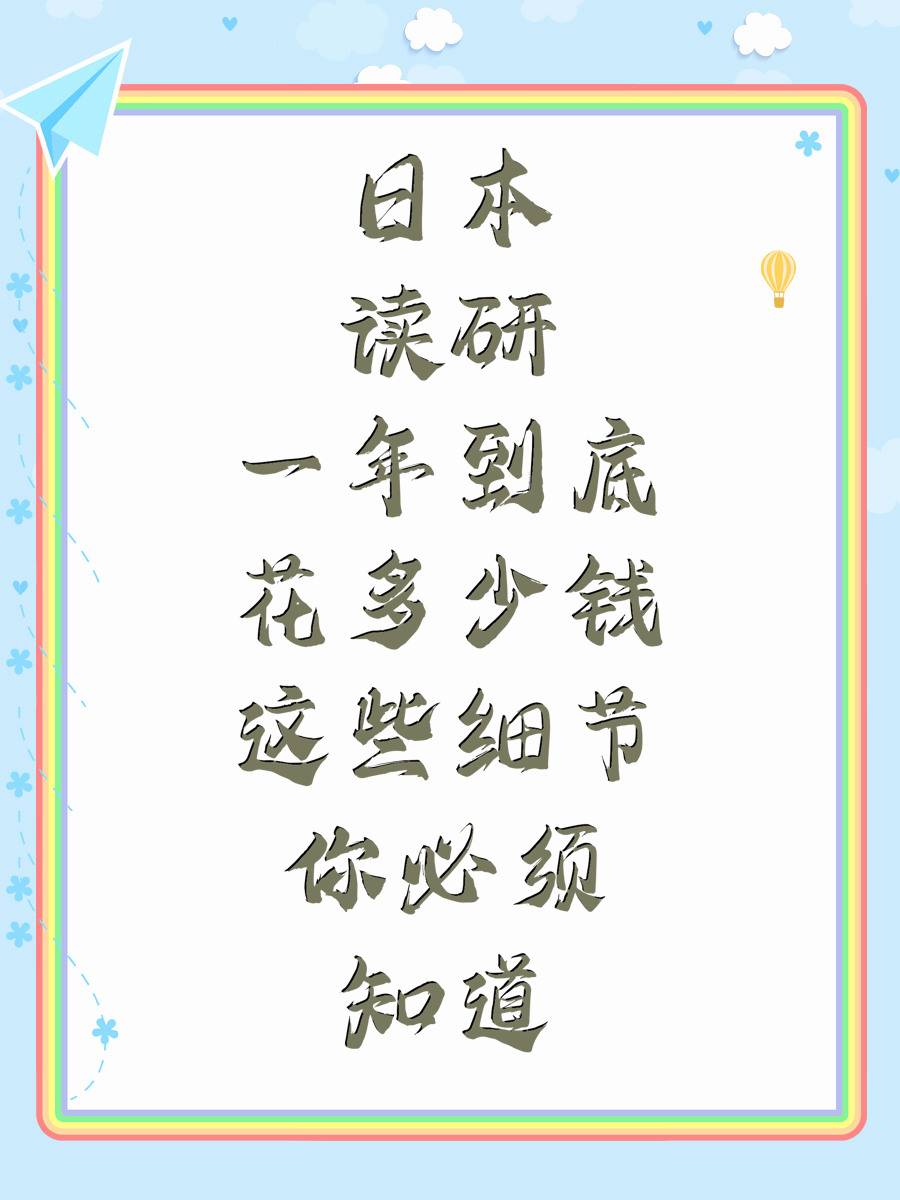 日本
读研
一年到底
花多少钱
这些细节
你必须
知道